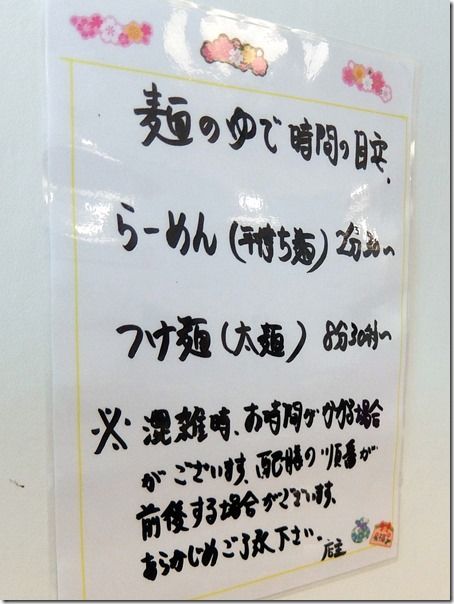 麺のゆで時間の目安、
らーめん(平打ち麺)2分30〜
つけ麺(太麺)8分30秒〜
※混雑時、お時間がかかる場合
がございます、配膳の順番が
前後する場合がございます、
あらかじめご了承下さい。
店主